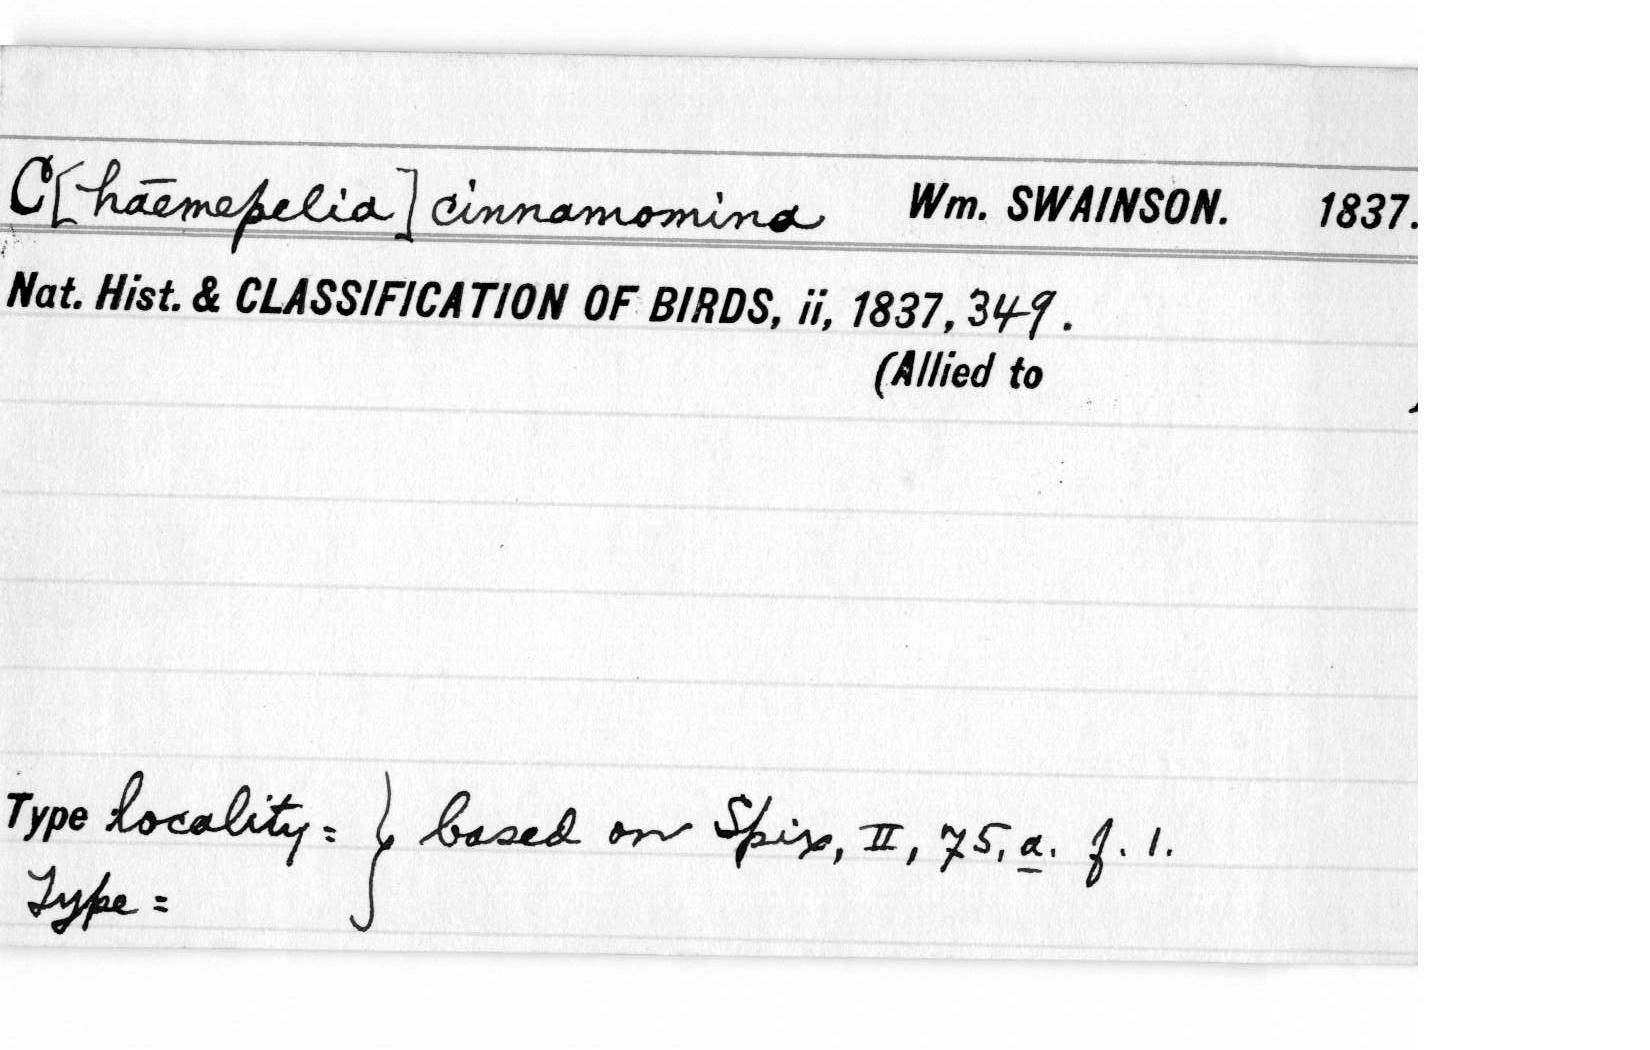 C[haemepelia] cinnamomina Wm. SWAINSON. 1837.
Nat. Hist. & CLASSIFICATION OF BIRDS, ii, 1837, 349.
(Allied to )
Type locality = } based on Spix, II, 75, a. f. 1.
Type =